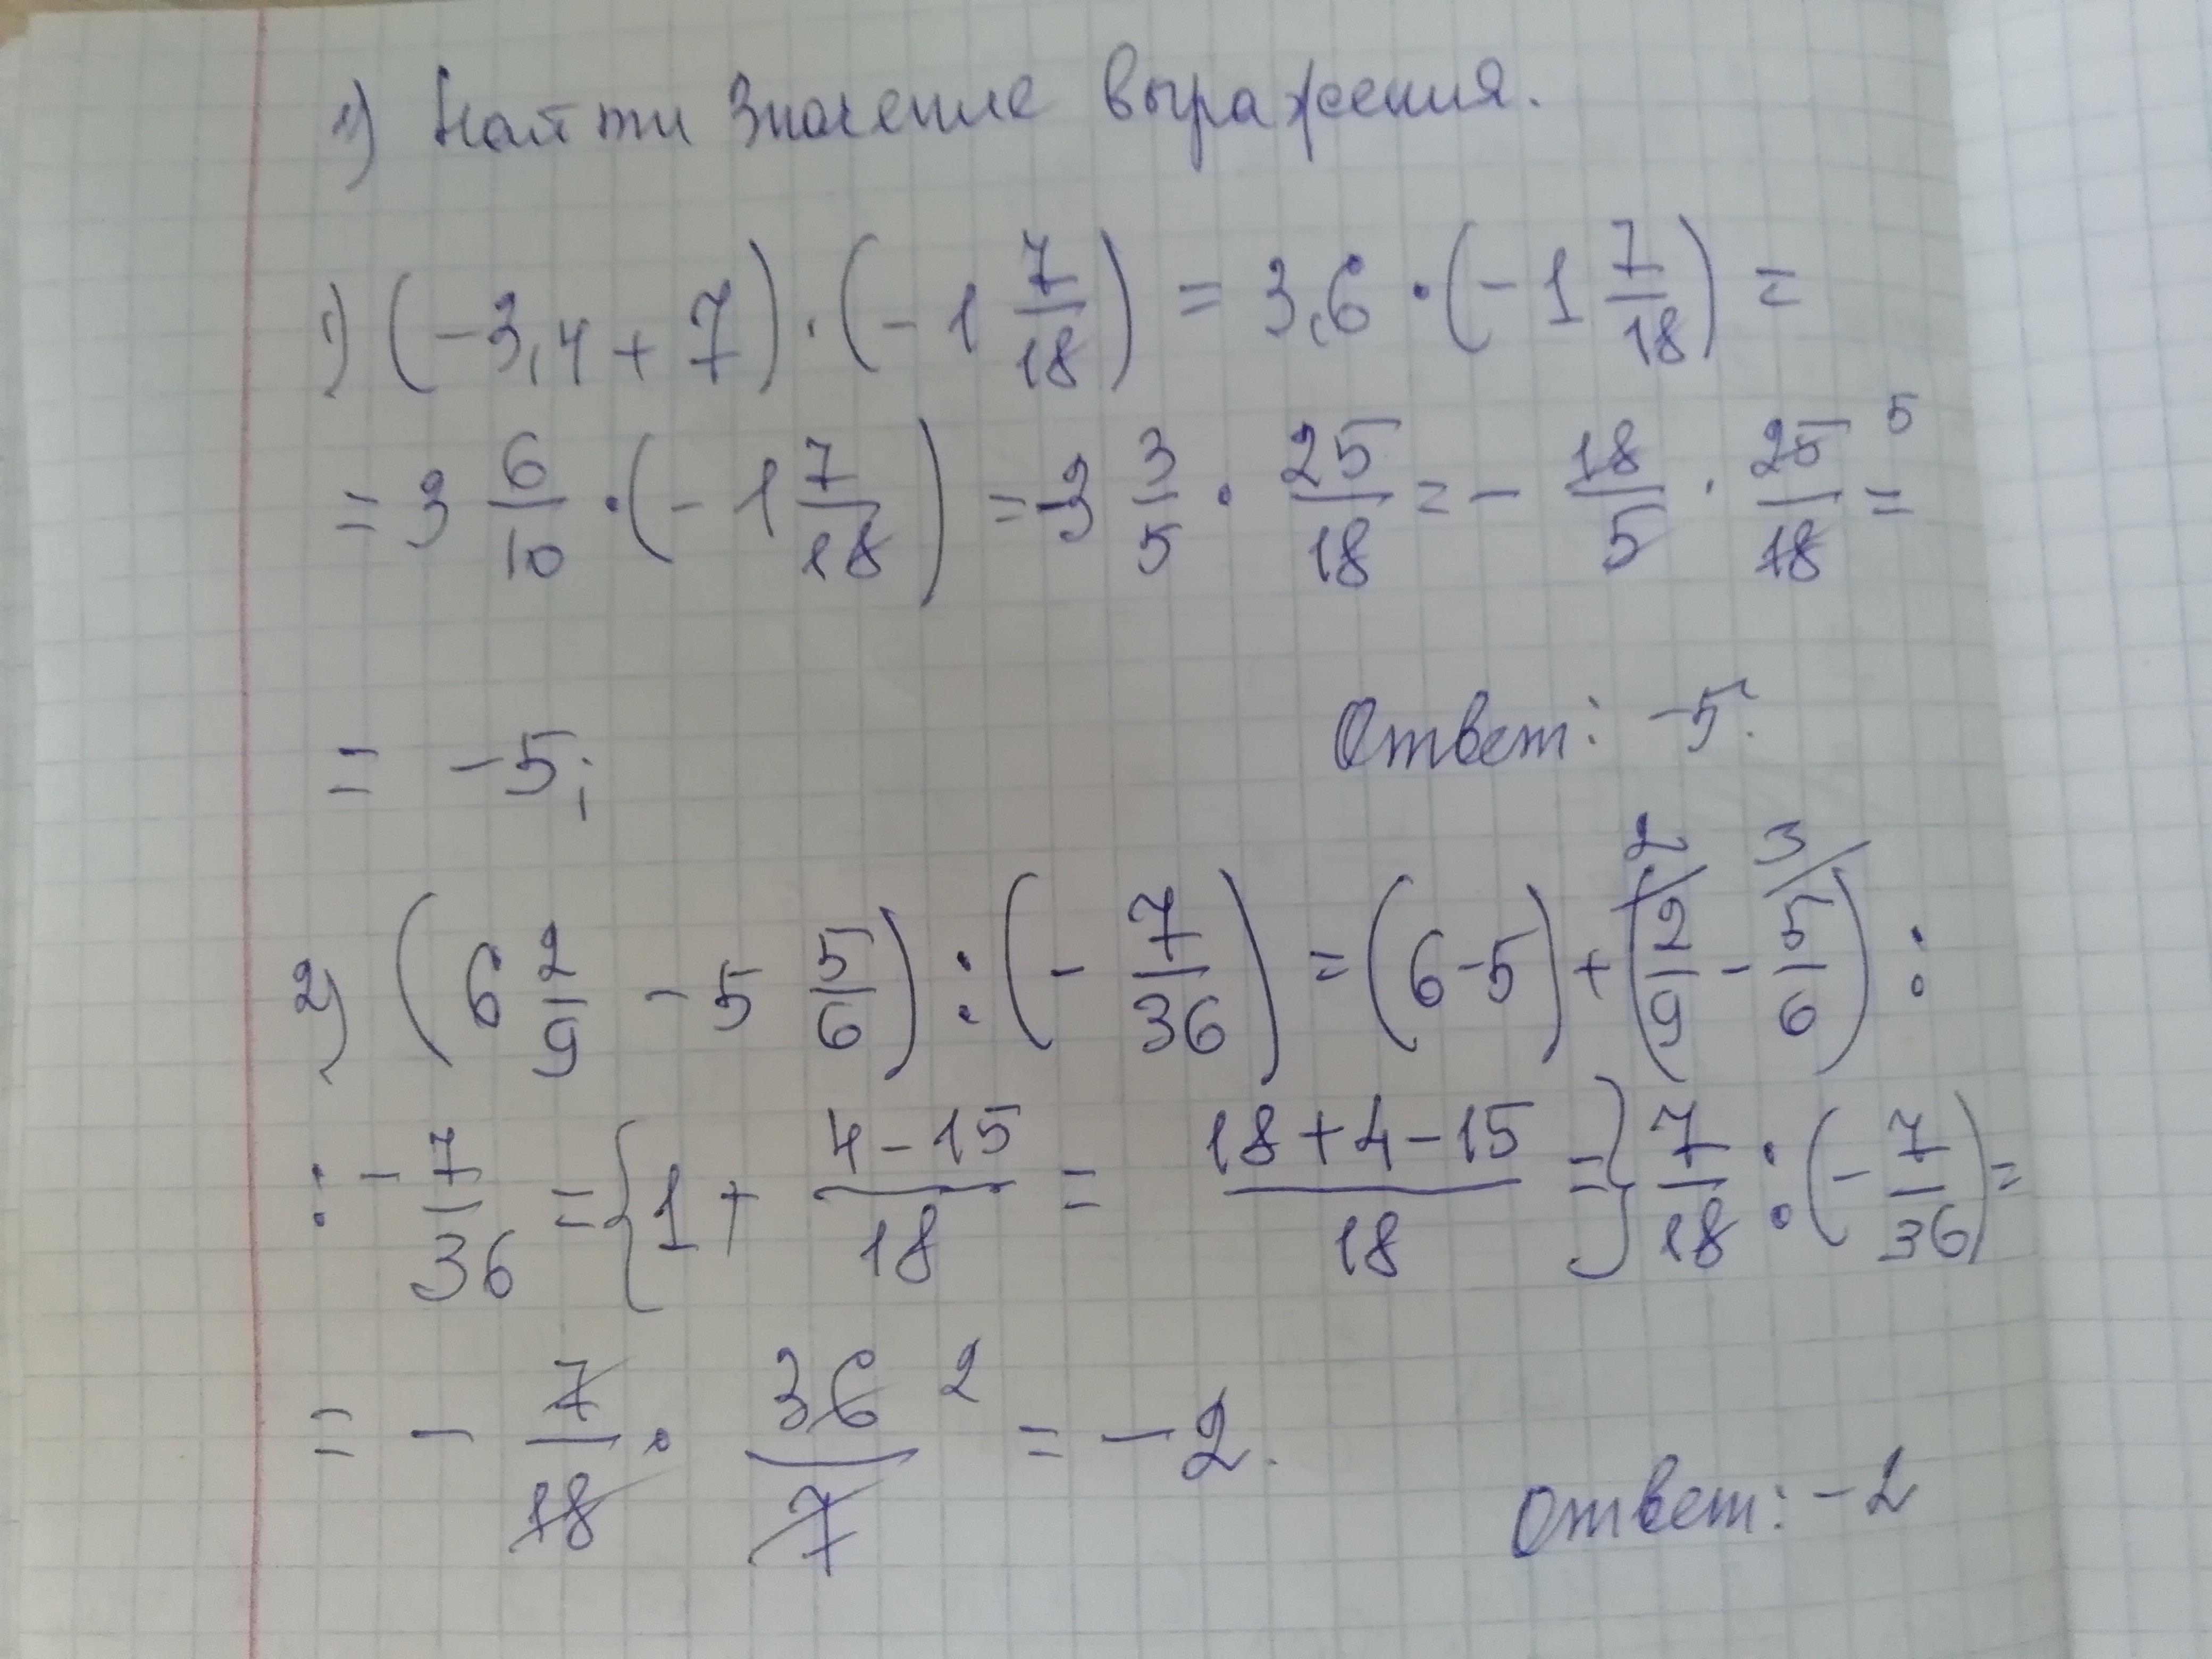 1) Найти значение выражения.
1) (-3,4 + 7) · (-1 7/18) = 3,6 · (-1 7/18) =
= 3 6/10 · (-1 7/18) = -3 3/5 · 25/18 = - 18/5 · 25/18 5 =
= -5; Ответ: -5.
2) (6 2/9 - 5 5/6) : (- 7/36) = (6-5) + (2/9 2/ - 5/6 3/) :
: - 7/36 = {1 + 4-15/18 = 18+4-15/18 =} 7/18 : (- 7/36) =
= - 7/18 · 36/7 2 = -2. Ответ: -2